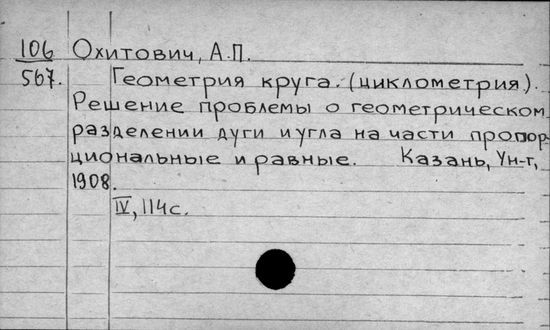 106 Охитович, А.П.
567. Геометрия круга. (циклометрия).
Решение проблемы о геометрическом
разделении дуги и угла на части пропор-
циональные и равные. Казань, Ун-т,
1908.
IV, 114с.